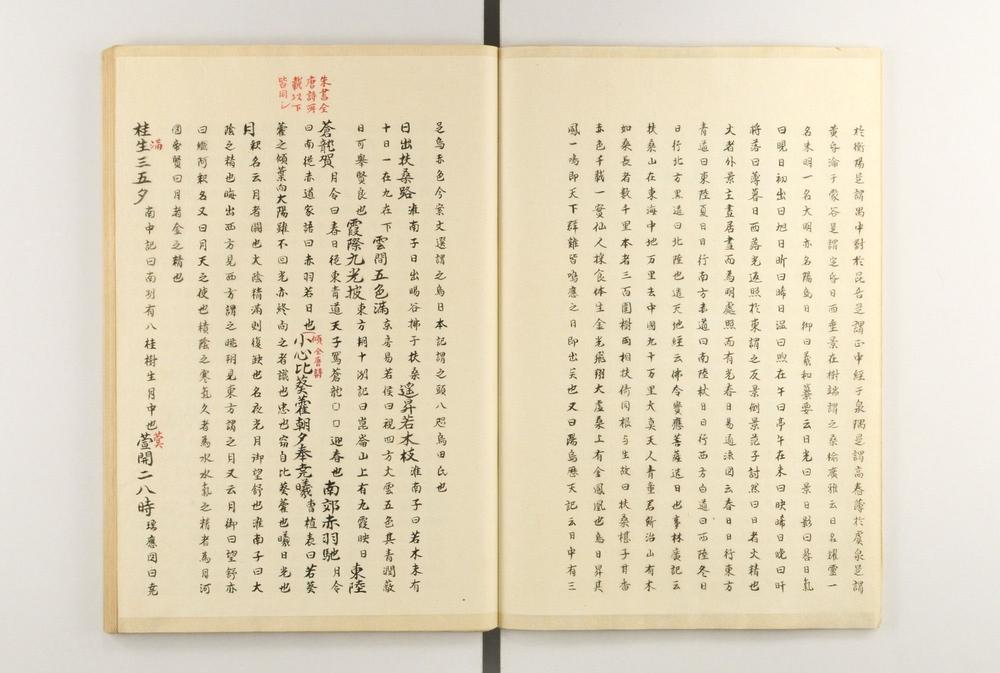 於衡陽是謂禺中對於昆吾是謂正中經于泉隅是謂高舂薄於虞泉是謂
黄昏淪于蒙谷是謂定昏日西垂景在樹端謂之桑榆廣雅云日名耀靈一
名朱明一名大明亦名陽烏日御曰羲和纂要云日光曰景日影曰晷日氣
曰晛日初出曰旭日昕曰晞日温曰煦在午曰亭午在未曰昳晞日晚曰旰
將落曰薄暮日西落光返照於東謂之反景倒景范子計然曰日者火精也
火者外景主晝居晝而為明處照而有光春日易通決図云春日日行東方
青道曰東陸夏日日行南方赤道曰南陸秋日日行西方白道曰西陸冬日
日行北方黒道曰北陸也造天地經云佛令寶應菩薩造日也事林廣記云
扶桑山在東海中地万里去中國九千万里大真天人青童君所治山有木
如桑長者數千里本者三百圍樹兩相扶倚同根与生故曰扶桑椹子甘香
赤色千載一實仙人採食体生金光飛翔大虚桑上有金鳳凰也烏日昇其
鳳一鳴即天下群雞皆鳴應之日即出矣也又曰萬烏應天記云日中有三
足烏赤色今案文選謂之烏日本記謂之頭八咫烏田氏也
日出扶桑路淮南子曰出暘谷拂于扶桑遥昇若木枝淮南子曰若木末有
十日一在九在下雲間五色滿京房易若候曰視四方大雲五色其青潤蔽
日可舉賢良也霞際九光披東方朔十洲記曰崑崙山上有九霞映日東陸
蒼龍賀月令曰春日從東青道天子駕蒼龍〇〇迎春也南郊赤羽馳月令
朱書全
唐詩所
載以下
皆同シ
曰南從赤道家語曰赤羽若日也小心比葵藿朝夕奉堯曦曹植表曰若葵
傾全唐詩
藿之傾葉向大陽雖不回光亦終向之者誠也忠也竊自比葵藿也曦日光也
月釈名云月者闕也大陰精滿則復缺也名夜光月御望舒也淮南子曰大
陰之精也晦出西方見西方謂之眺朔見東方謂之月又云月御曰望舒亦
曰纖阿釈名又曰月天之使也積陰之寒氣久者為水水氣之精者為月河
圖帝賢曰月者金之精也
桂生三五夕南中記曰南列有八桂樹生月中也萱開二八時瑞應図曰堯
滿
蓂